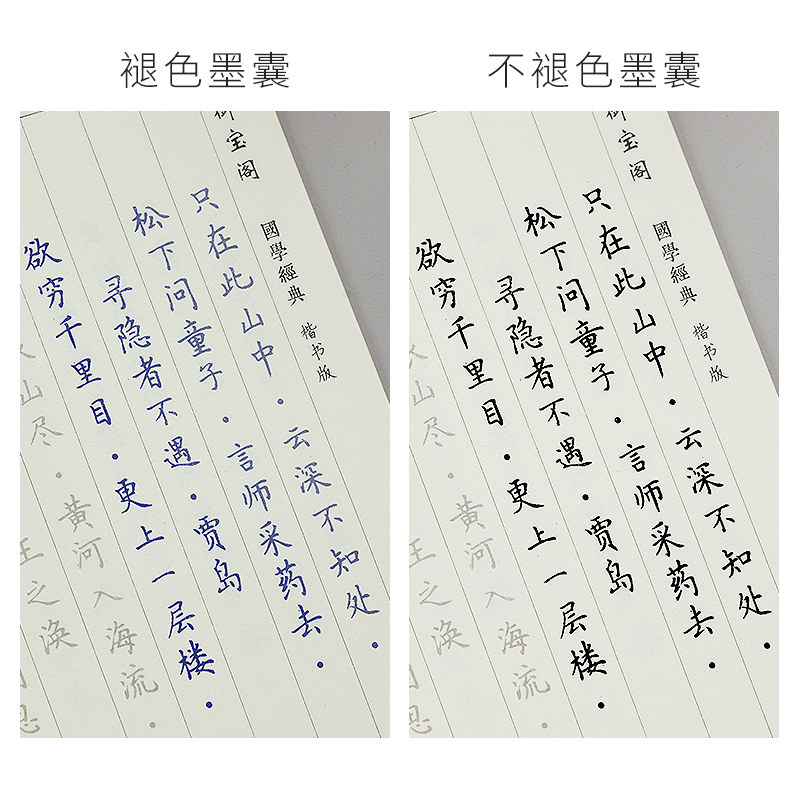 褪色墨囊
宝阁
國學經典 楷书版
只在此山中·云深不知处·
松下问童子·言师采药去·
寻隐者不遇·贾岛
欲穷千里目·更上一层楼·
山尽·黄河入海流·
王之涣
不褪色墨囊
宝阁
國學經典 楷书版
只在此山中·云深不知处·
松下问童子·言师采药去·
寻隐者不遇·贾岛
欲穷千里目·更上一层楼·
山尽·黄河入海流·
王之涣